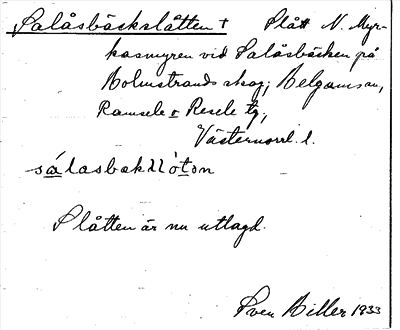 Salåsbäckslåtten + Slått N. Myr-
kasmyren vid Salåsbäcken på
Holmstrands skog; Helgumsån,
Ramsele o Resele tg.,
Västernorrl. l.
sálasbakllòton
Slåtten är nu utlagd.
Sven Hiller 1933